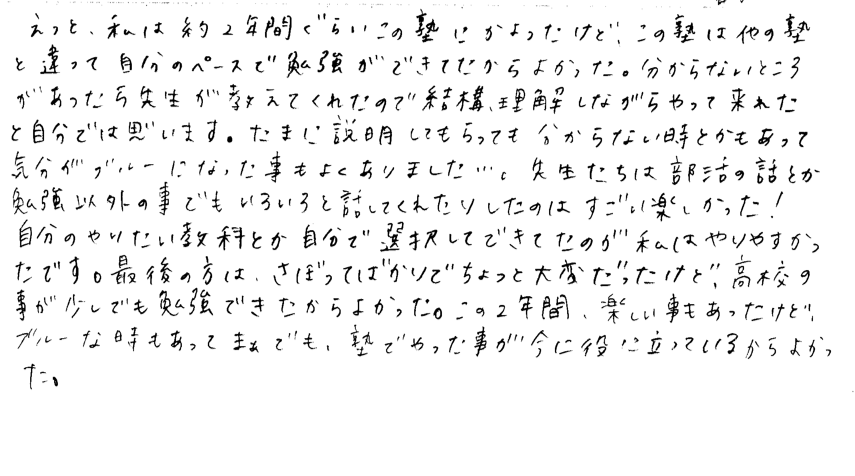 えっと、私は約2年間ぐらいこの塾にかよったけど、この塾は他の塾
と違って自分のペースで勉強ができてたからよかった。分からないところ
があったら先生が教えてくれたので結構、理解しながらやって来れた
と自分では思います。たまに説明してもらっても分からない時とかもあって
気分がブルーになった事もよくありました…。先生たちは部活の話とか
勉強以外の事でもいろいろと話してくれたりしたのはすごい楽しかった!
自分のやりたい教科とか自分で選択してできてたのが私はやりやすかっ
たです。最後の方は、さぼってばかりでちょっと大変だったけど、高校の
事が少しでも勉強できたからよかった。この2年間、楽しい事もあったけど、
ブルーな時もあってまぁでも、塾でやった事が今に役に立っているからよかっ
た。